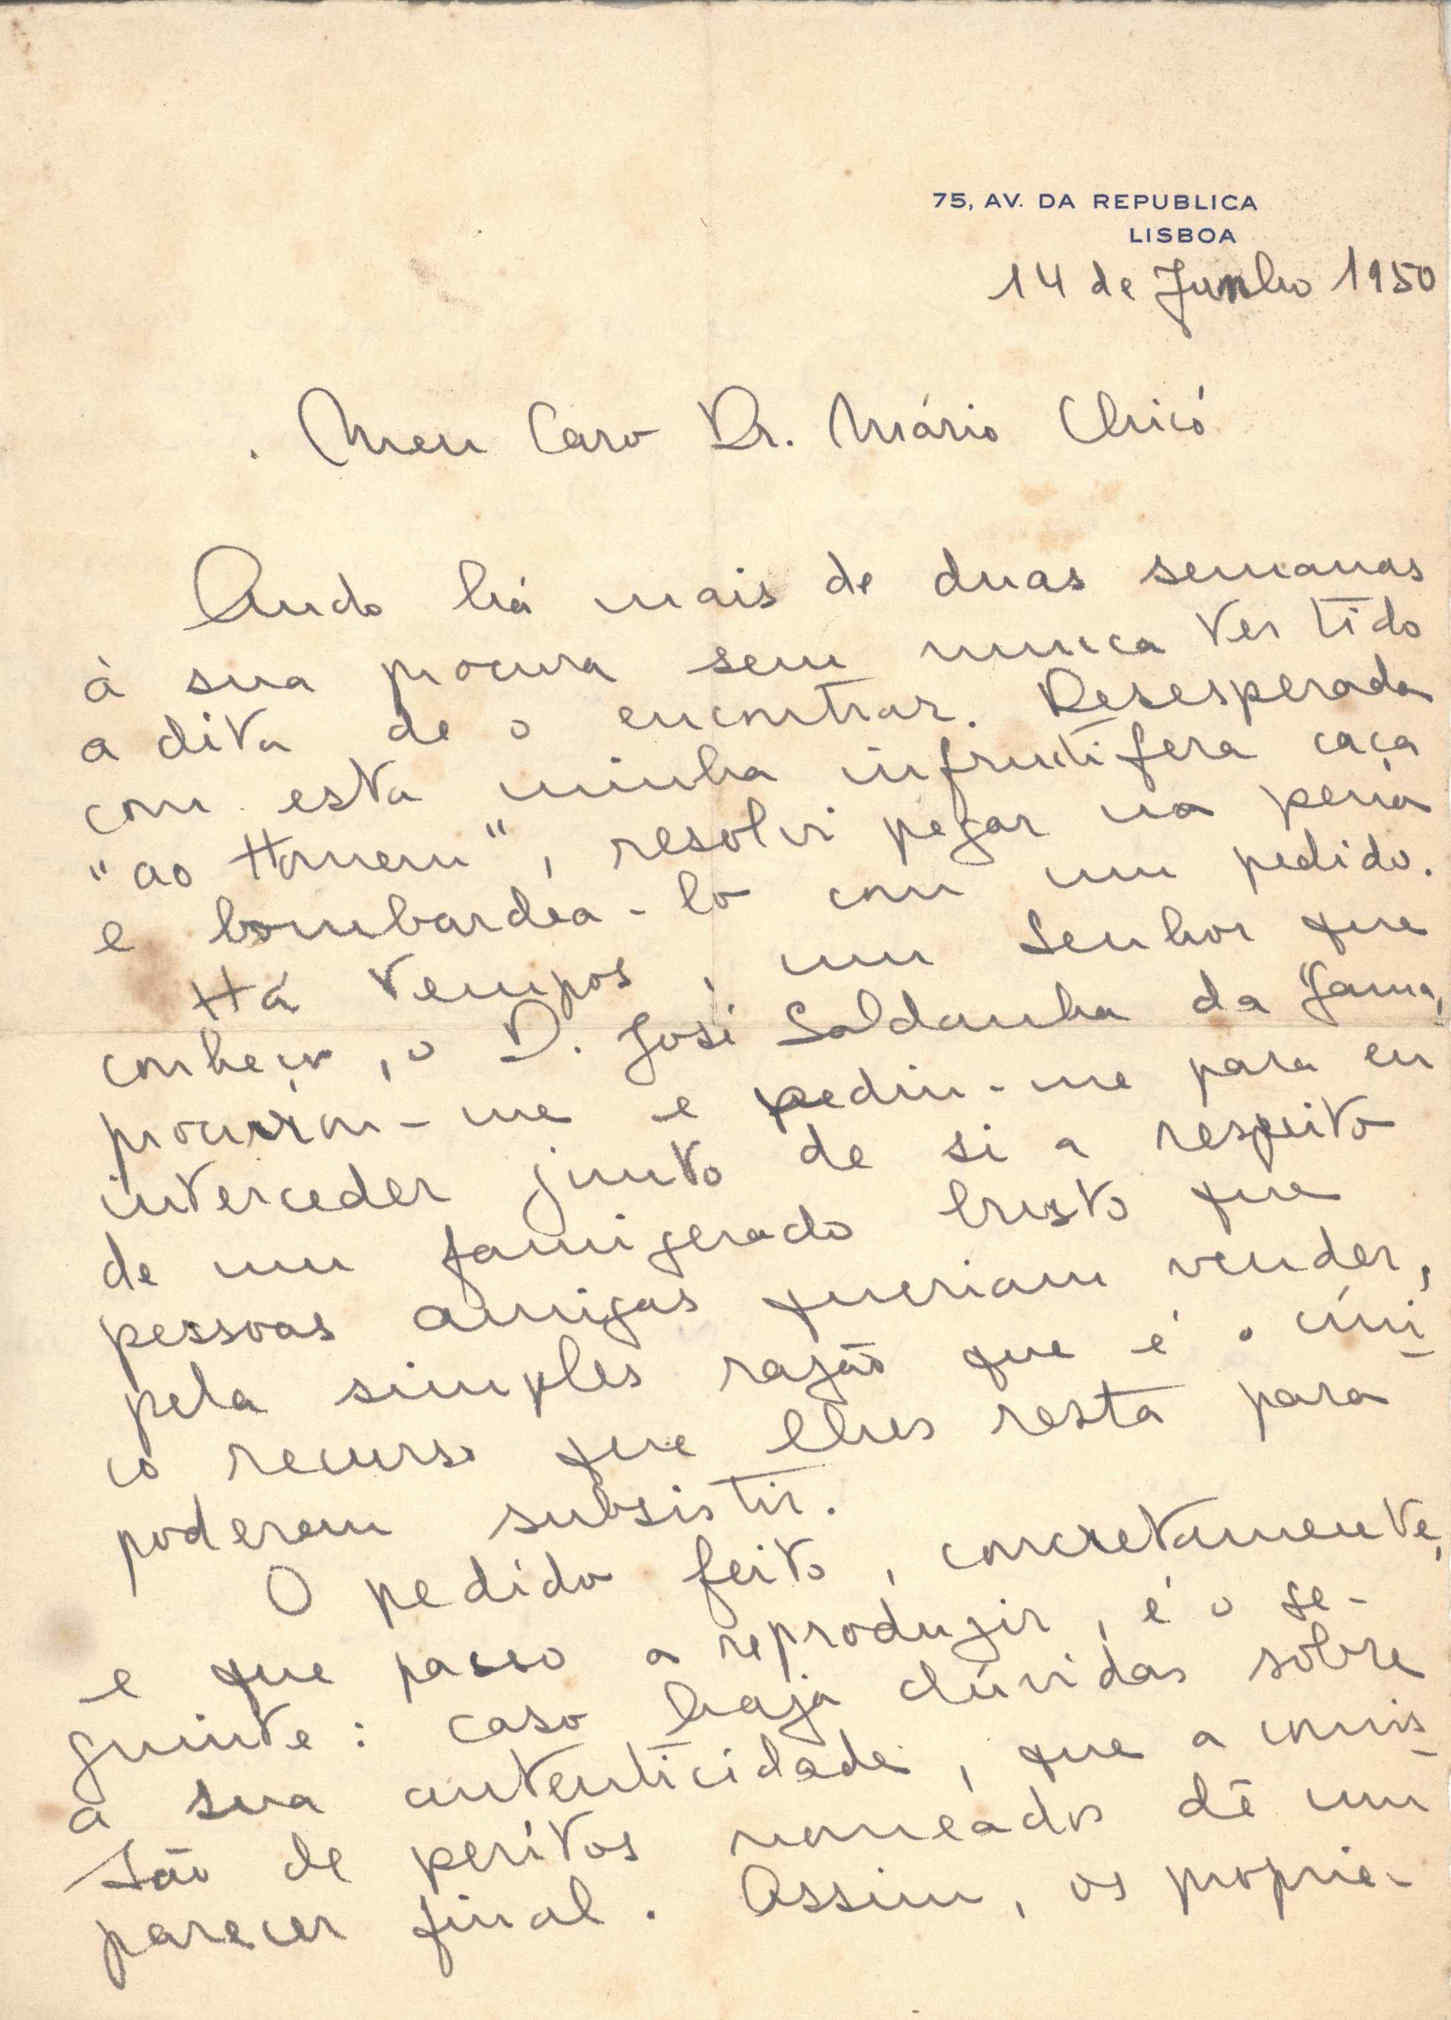 75, AV. DA REPUBLICA
LISBOA
14 de Junho 1950
Meu Caro Dr. Mário Chicó
Ando há mais de duas semanas
à sua procura sem nunca ter tido
a dita de o encontrar. Desesperada
com esta minha infrutífera caça
"ao Homem", resolvi pegar na pena
e bombardeá-lo com um pedido.
Há tempos, um Senhor que
conheço, o D. José Saldanha da Gama,
procurou-me e pediu-me para eu
interceder junto de si a respeito
de um famigerado busto que
pessoas amigas queriam vender,
pela simples razão que é o úni-
co recurso que lhes resta para
poderem subsistir.
O pedido feito, concretamente,
e que passo a reproduzir, é o se-
guinte: caso haja dúvidas sobre
a sua autenticidade, que a comis-
são de peritos nomeados dê um
parecer final. Assim, os proprie-